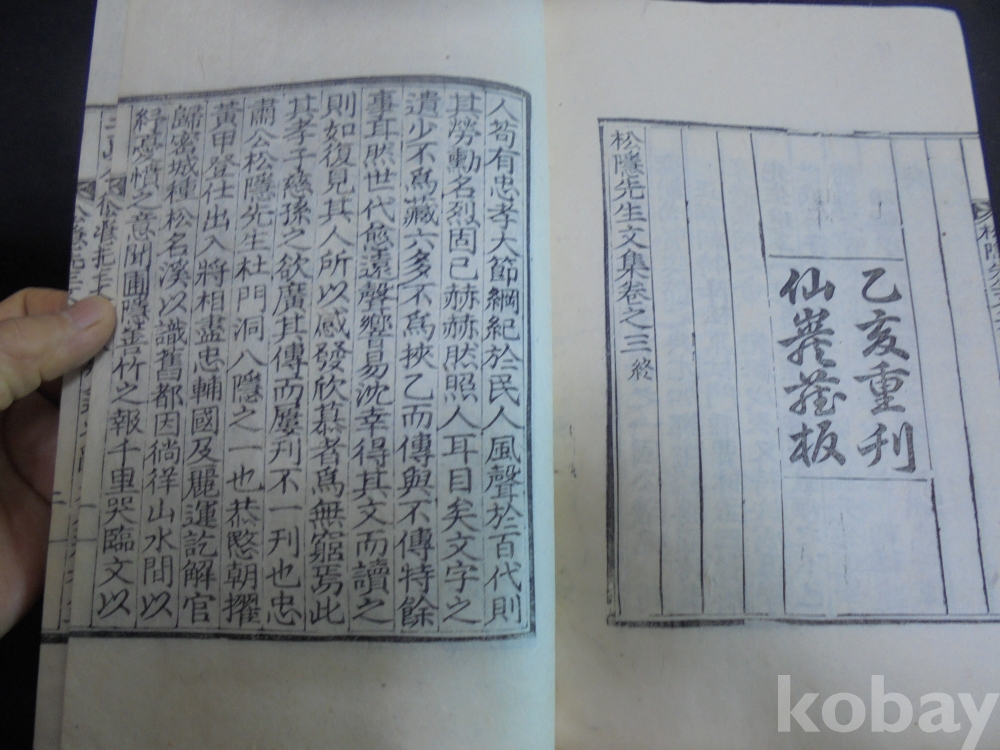 乙亥重刊
仙巖藏板
松隱先生文集卷之三 終
人苟有忠孝大節綱紀於民人風聲於百代則
其勞勳名烈固已赫赫然照人耳目矣文字之
遺少不爲藏六多不爲挾乙而傳與不傳特餘
事耳然世代愈遠聲響易沈幸得其文而讀之
則如復見其人所以感發欣慕者爲無窮焉此
其孝子慈孫之欲廣其傳而屢刊不一刊也忠
肅公松隱先生杜門洞八隱之一也恭愍朝擢
黃甲登仕出入將相盡忠輔國及麗運訖解官
歸密城種松名溪以識舊都因徜徉山水間以
憂憤之意聞圃隱善竹之報千里哭臨文以
kobay